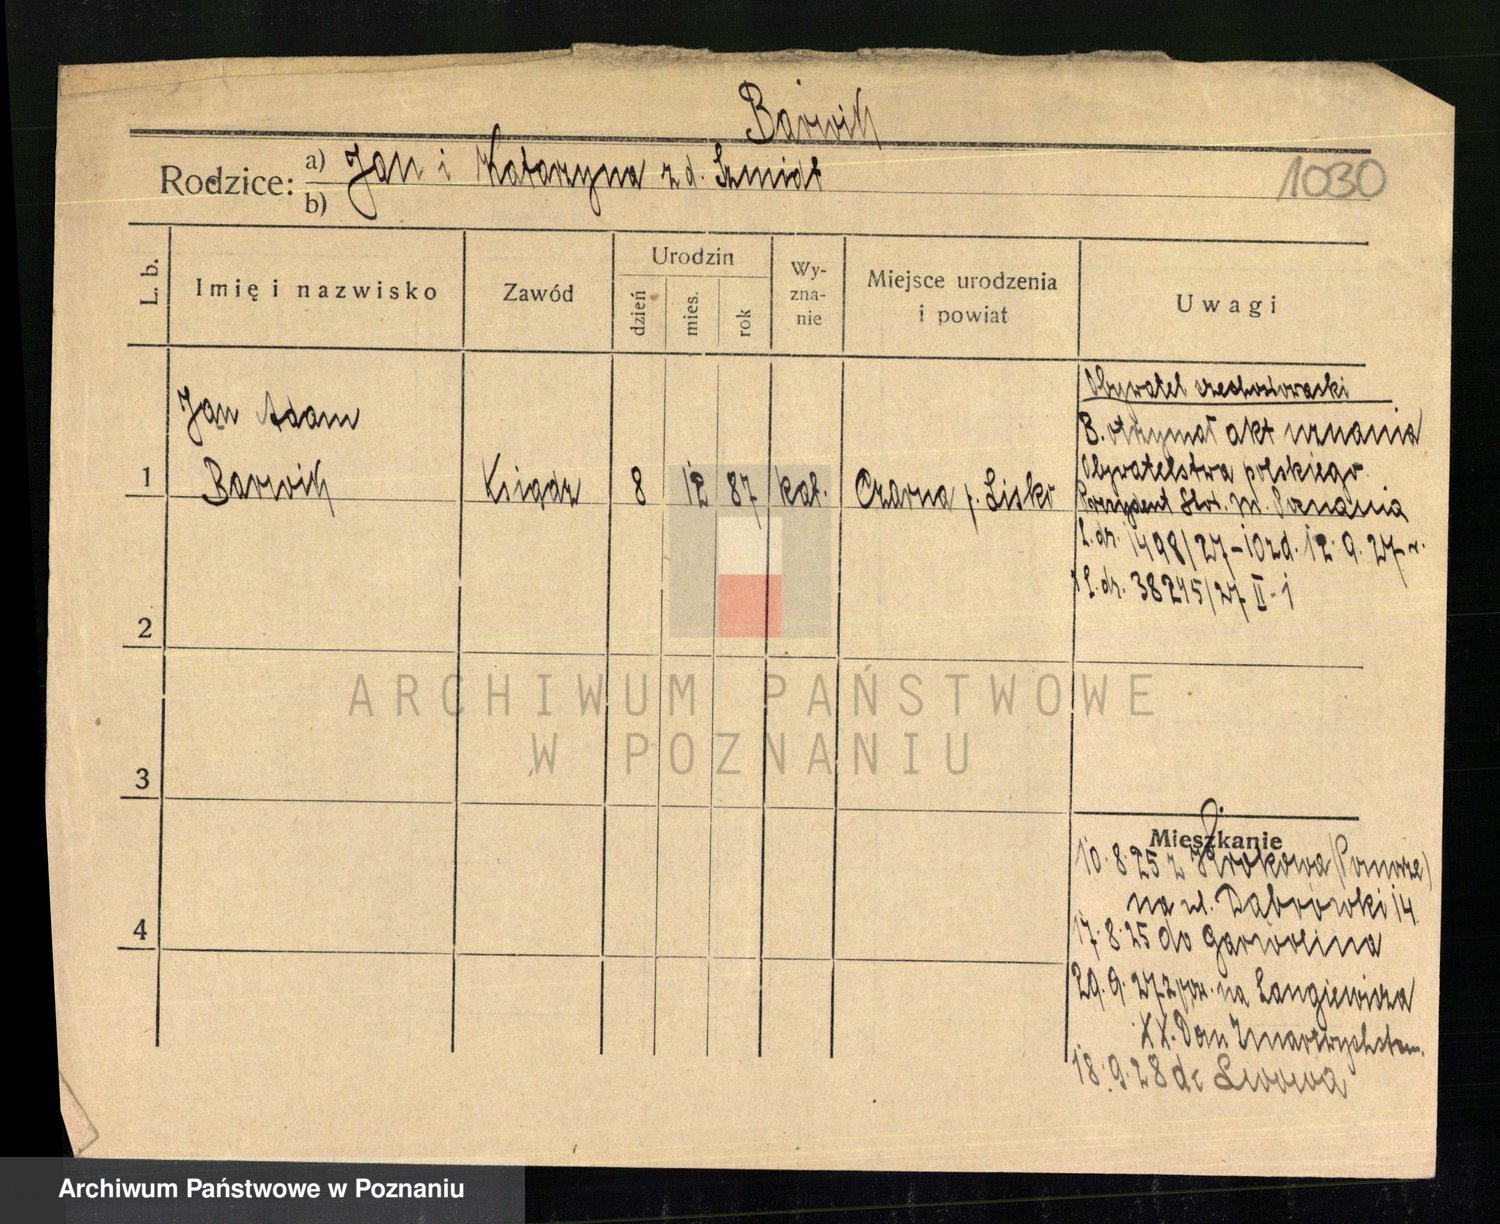 Barwik
Rodzice: a) Jan i Katarzyna z d. Szmidt
b)
1030
L. b.
Imię i nazwisko
Zawód
Urodzin
dzień
mies.
rok
Wy-
zna-
nie
Miejsce urodzenia
i powiat
Uwagi
Jan Adam
1 Barwik Ksiądz 8 12 87 kat. Czarna p. Lisko
Obywatel czechosłowacki
B. otrzymał akt uznania
Obywatelstwa polskiego.
Prezydent Stoł. m. Poznania
L. dz. 1498/27-10 z d. 12.9.27 r.
L. dz. 38245/27 II-1
2
3
4
Mieszkanie
10.8.25 z Krokowa (Pomorze)
na ul. Dąbrówki 14
17.8.25 do Garwolina
29.9.27 z na Langiewicza
XX. Dom Zmartwychstan.
18.9.28 do Lwowa
ARCHIWUM PAŃSTWOWE
W POZNANIU
Archiwum Państwowe w Poznaniu